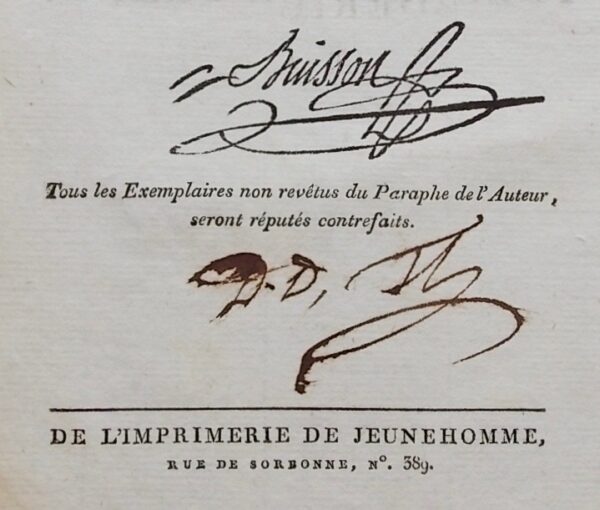 Buisson
Tous les Exemplaires non revêtus du Paraphe de l'Auteur,
seront réputés contrefaits.
D.D,
DE L'IMPRIMERIE DE JEUNEHOMME,
RUE DE SORBONNE, N°. 389.